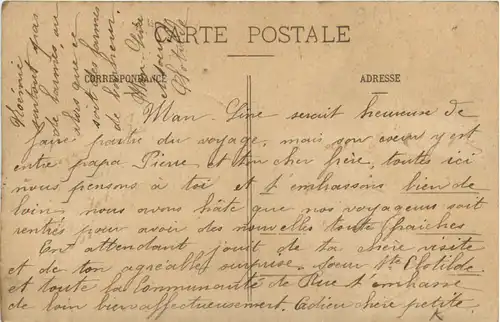 CARTE POSTALE
CORRESPONDANCE
ADRESSE
Man-Line serait heureuse de
faire partie du voyage, mais son coeur y est
entre papa Pierre et ton cher frère, toutes ici
nous pensons à toi et t'embrassons bien de
loin, nous avons hâte que nos voyageurs soit
rentrés pour avoir des nouvelles toute fraiches
En attendant jouit de ta chère visite
et de ton agréable surprise. Soeur Ste Clotilde
et toute la Communauté de Rue t'embrasse
de loin bien affectueusement. Adieu chère petite
surtout pas
de larmes, ou
alors que ce
soit des larmes
de bonheur.
Man-Line
Clotilde